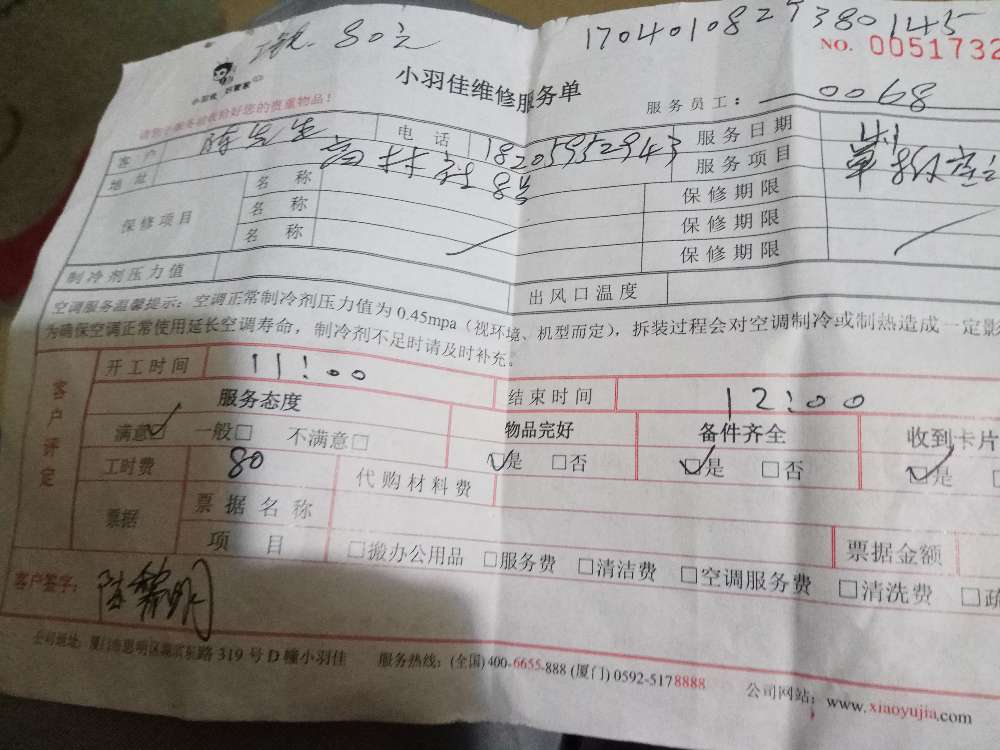 80元 1704010827380145
NO. 0051732
小羽佳 好管家
小羽佳维修服务单
服务员工： 0068
请您在服务前收拾好您的贵重物品！
客户 陈先生 电话 18205952943 服务日期 4.1
地址 高林社 85 服务项目 单拆空
保修项目 名称 保修期限
名称 保修期限
名称 保修期限
制冷剂压力值 出风口温度
空调服务温馨提示：空调正常制冷剂压力值为 0.45mpa（视环境、机型而定），拆装过程会对空调制冷或制热造成一定影
为确保空调正常使用延长空调寿命，制冷剂不足时请及时补充。
客户评定
开工时间 11:00 结束时间 12:00
服务态度 物品完好 备件齐全 收到卡片
满意☑ 一般□ 不满意□ ☑是 □否 ☑是 □否 ☑是
工时费 80 代购材料费
票据 票据名称 票据金额
项目 □搬办公用品 □服务费 □清洁费 □空调服务费 □清洗费 □疏
客户签字：
公司地址：厦门市思明区嘉滨东路 319 号 D 幢小羽佳 服务热线：(全国) 400-6655-888 (厦门) 0592-5178888 公司网站：www.xiaoyujia.com